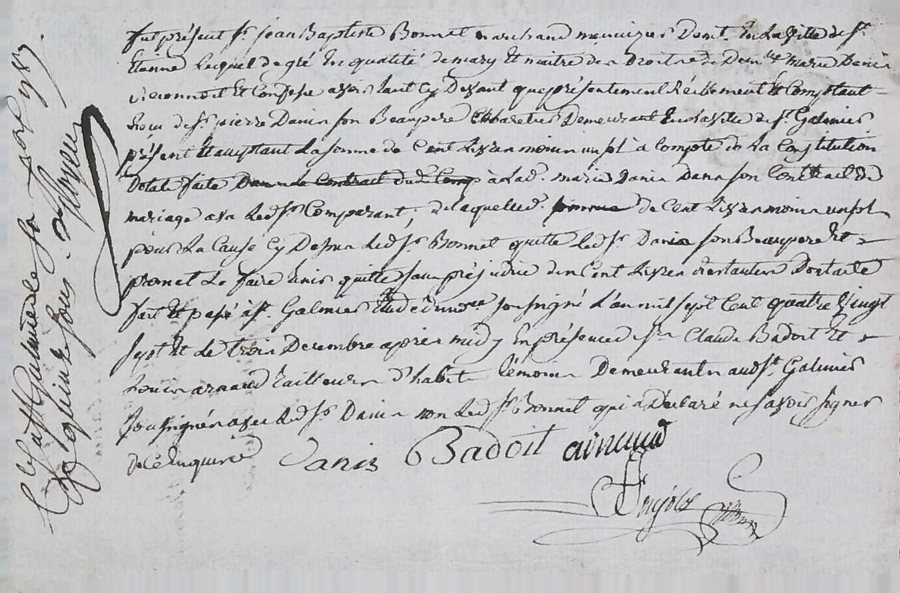 fut présent Sr. jean Baptiste Bonnet marchand menuizier Demt. En La Ville de St.
Etienne Lequel de gré En qualité de mary Et maitre des Droits de Demlle marie Danis
reconnoit Et Confesse avoir tant cy Devant que présentement Réellement Et Comptant
Recu de Sr. pierre Danis son Beaupere Cabaretier Demeurant En la Ville de St. Galmier
présent Et acceptant La somme de Cent Livres moins un sol a Compte de La Constitution
Dotale faite a lad. marie Danis Dans son Contract de
mariage avec Led. Sr. Comparant, de laquelle de Cent Livres moins un sol
pour La Cause Cy Dessus Led. Sr. Bonnet quitte Led. Sr. Danis son Beaupere Et
promet Le faire tenir quitte sans préjudice des Cent Livres restantes Dont acte
fait Et passé a St. Galmier Etude du nore soussigné L'an mil sept Cent quatre Vingt
sept Et Le trois Decembre après midy En présence de Sr. Claude Badoit Et
Louis arnaud tailleurs d'habits témoins Demeurants aud. St. Galmier
soussignés avec Led. Sr. Danis non Led. Sr. Bonnet qui a Déclaré ne savoir signer
de ce Enquis
Danis Badoit arnaud
Clé a St Galmier le 10 Xbre 1787
quinze sous